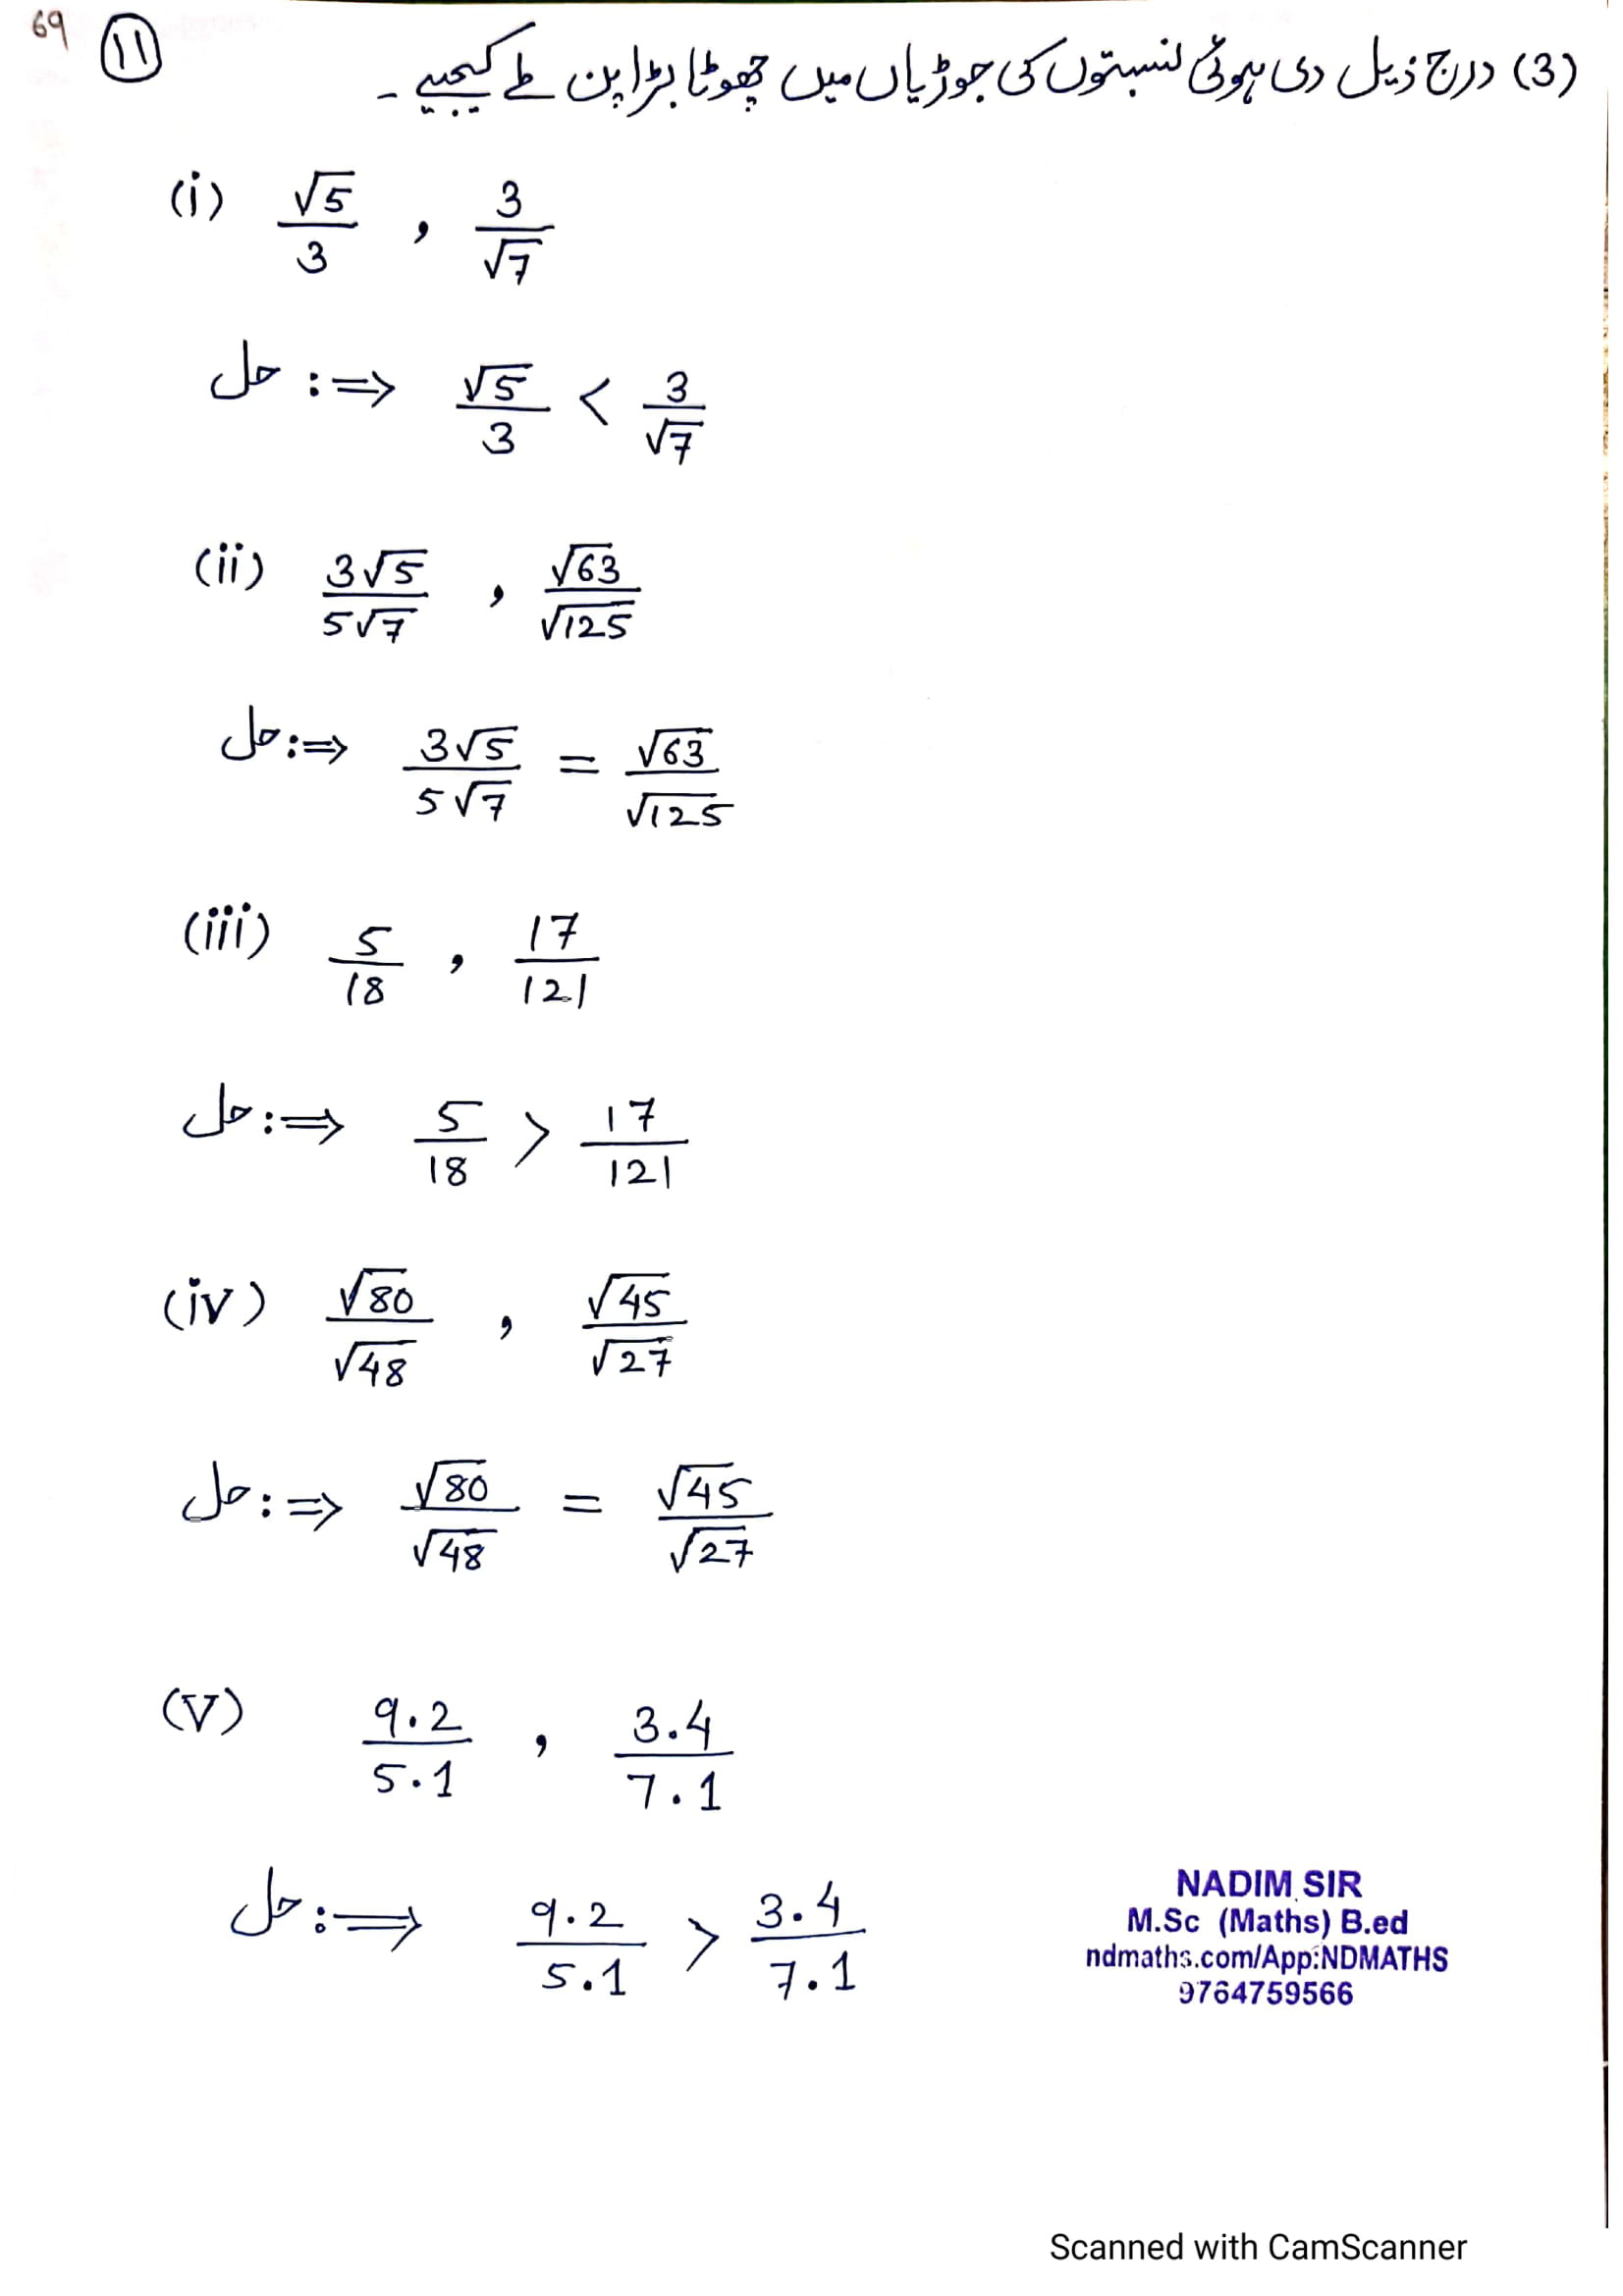 69
11
(3) درج ذیل دی ہوئی نسبتوں کی جوڑیاں میں چھوٹا بڑا پن طے کیجیے ۔
(i) √5/3 , 3/√7
حل :⇒ √5/3 < 3/√7
(ii) 3√5/5√7 , √63/√125
حل :⇒ 3√5/5√7 = √63/√125
(iii) 5/18 , 17/121
حل :⇒ 5/18 > 17/121
(iv) √80/√48 , √45/√27
حل :⇒ √80/√48 = √45/√27
(V) 9.2/5.1 , 3.4/7.1
حل :⇒ 9.2/5.1 > 3.4/7.1
NADIM SIR
M.Sc (Maths) B.ed
ndmaths.com/App:NDMATHS
9764759566
Scanned with CamScanner